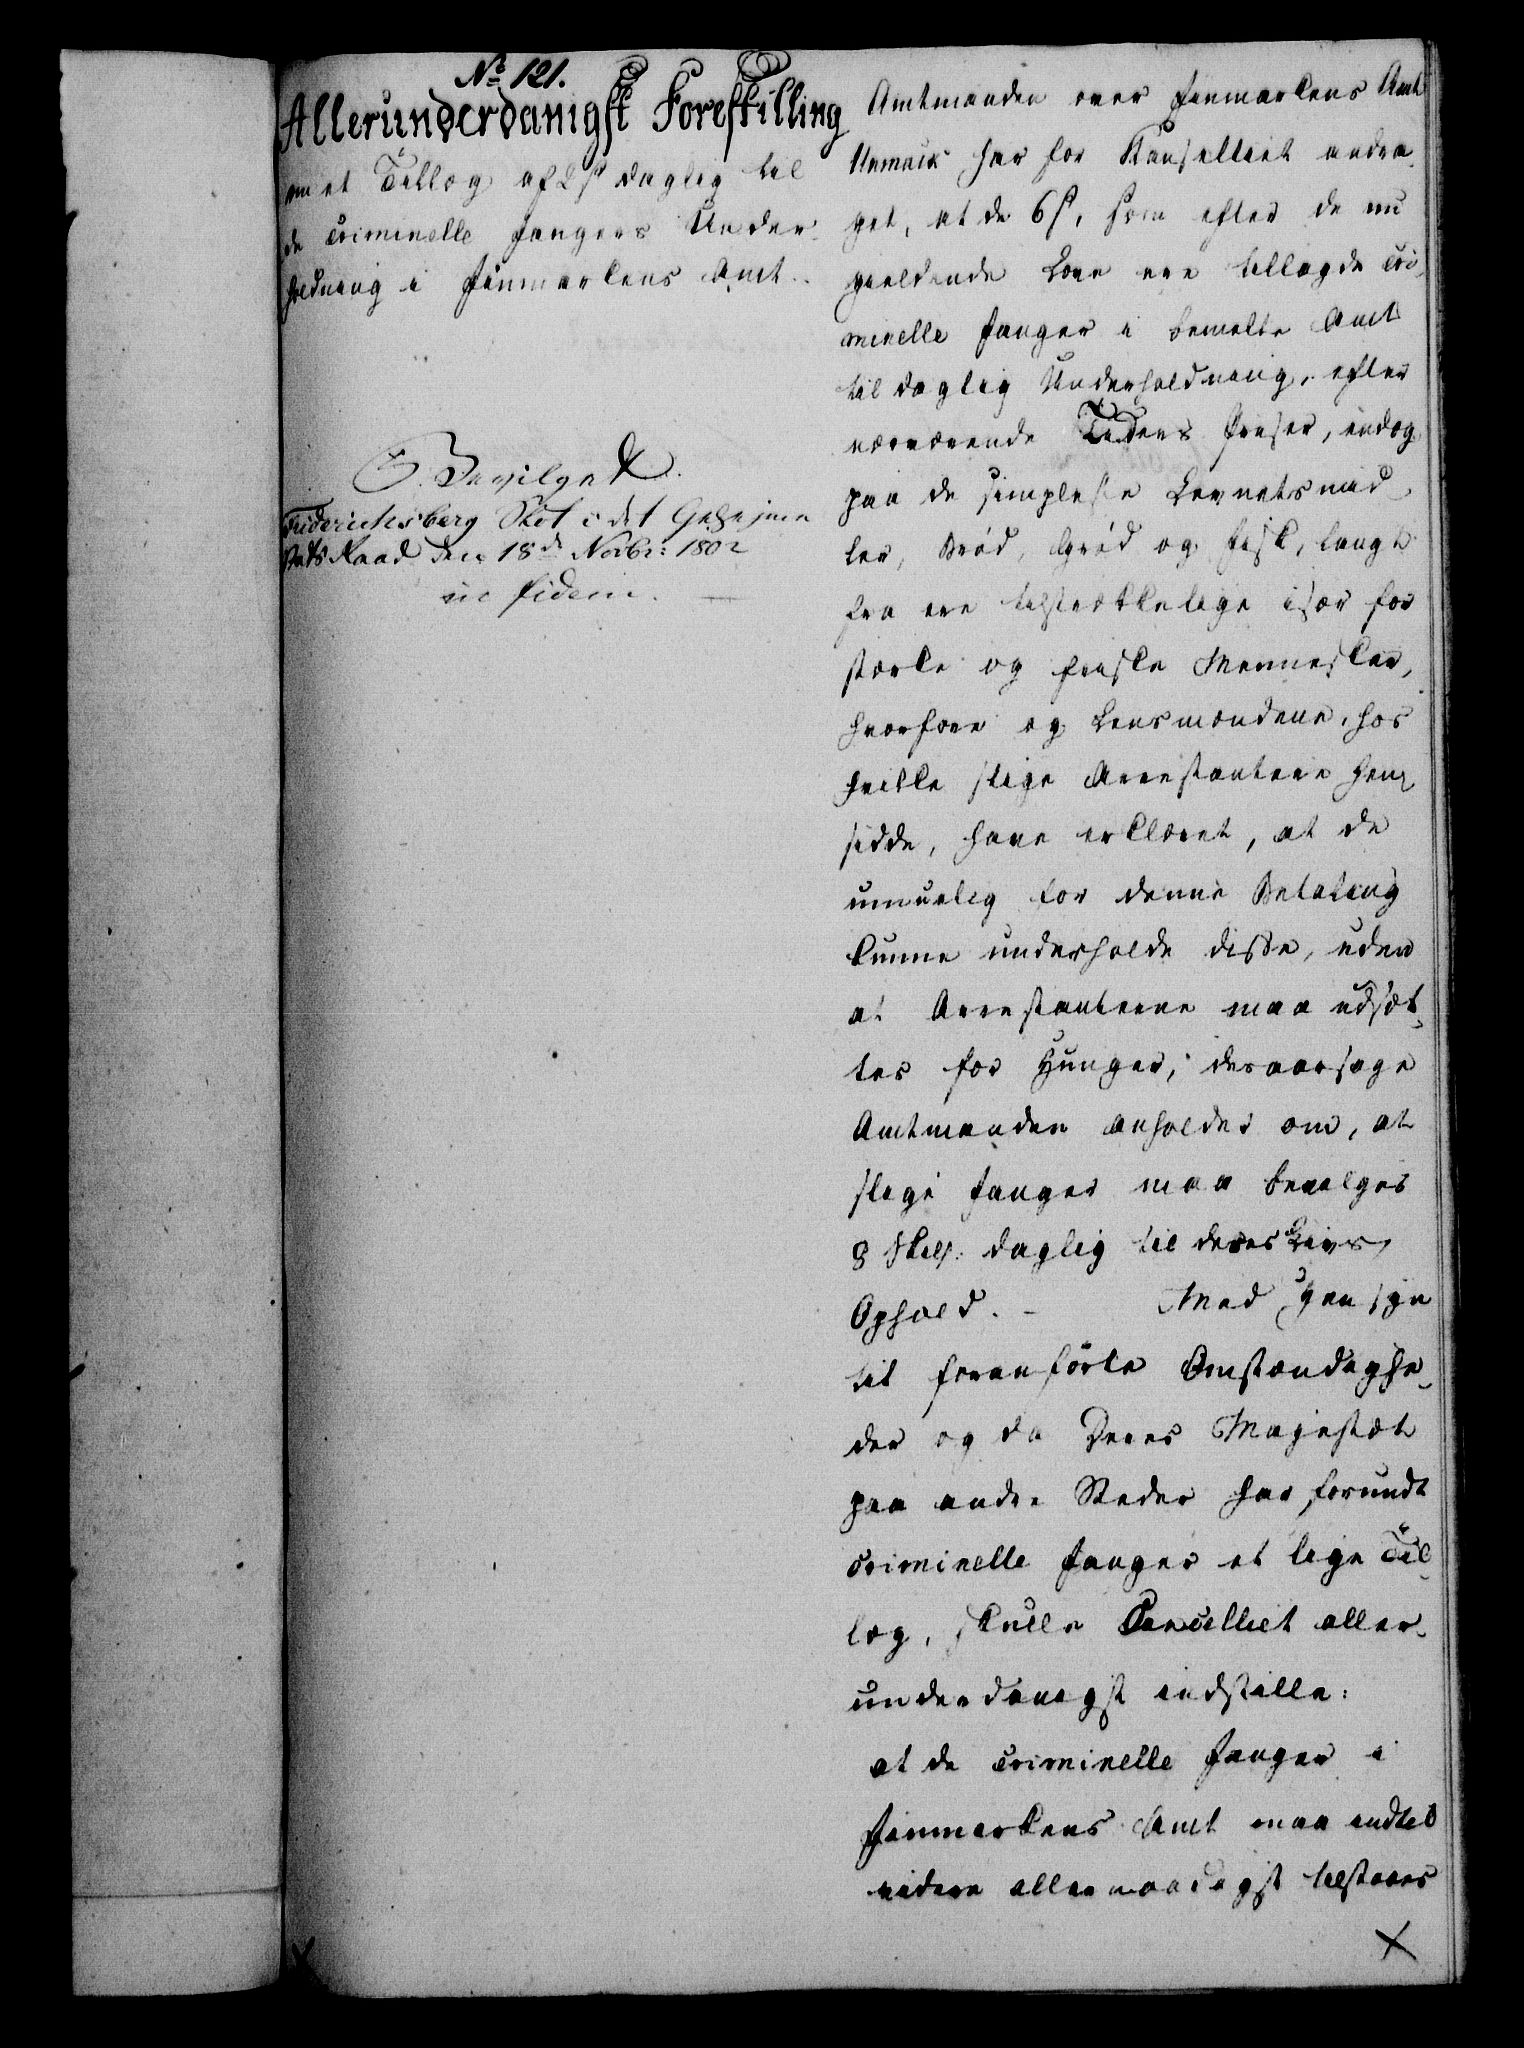 No 121.
Allerunderdanigst Forestilling
om et Tillæg af 2 s daglig til
de Criminelle Fangers Under-
holdning i Finmarkens Amt.
Bevilget
Friderichsberg Slot i det Geheime
Stats Raad den 18de Novbr: 1802
in fidem.
Amtmanden over Finmarkens Amt
har for Kancelliet andra-
get, at de 6 s, som efter de nu
gieldende Love ere tillagde Cri-
minelle Fanger i bemelte Amt
til daglig Underholdning, efter
nærværende Tiders Priser, endog
paa de simpleste Levnetsmid-
ler, Brød, Grød og Fisk, langt
fra ere tilstrækkelige især for
stærke og friske Mennesker,
hvorfore og Lensmændene, hos
hvilke slige Arrestantere hen-
sidde, have erklæret, at de
umuelig for denne Betaling
kunne underholde disse, uden
at Arrestanterne maa udsæt-
tes for Hunger; desaarsage
Amtmanden anholder om, at
slige Fanger maa bevilges
8 Skil. daglig til deres Livs
Ophold. - Med Hensyn
til foranførte Omstændighe-
der og da Deres Majestæt
paa andre Steder har forundt
Criminelle Fanger et lige Til-
læg, skulle Cancelliet aller-
underdanigst indstille:
at de Criminelle Fanger i
Finmarkens Amt maa indtil
videre allernaadigst tilstaaes